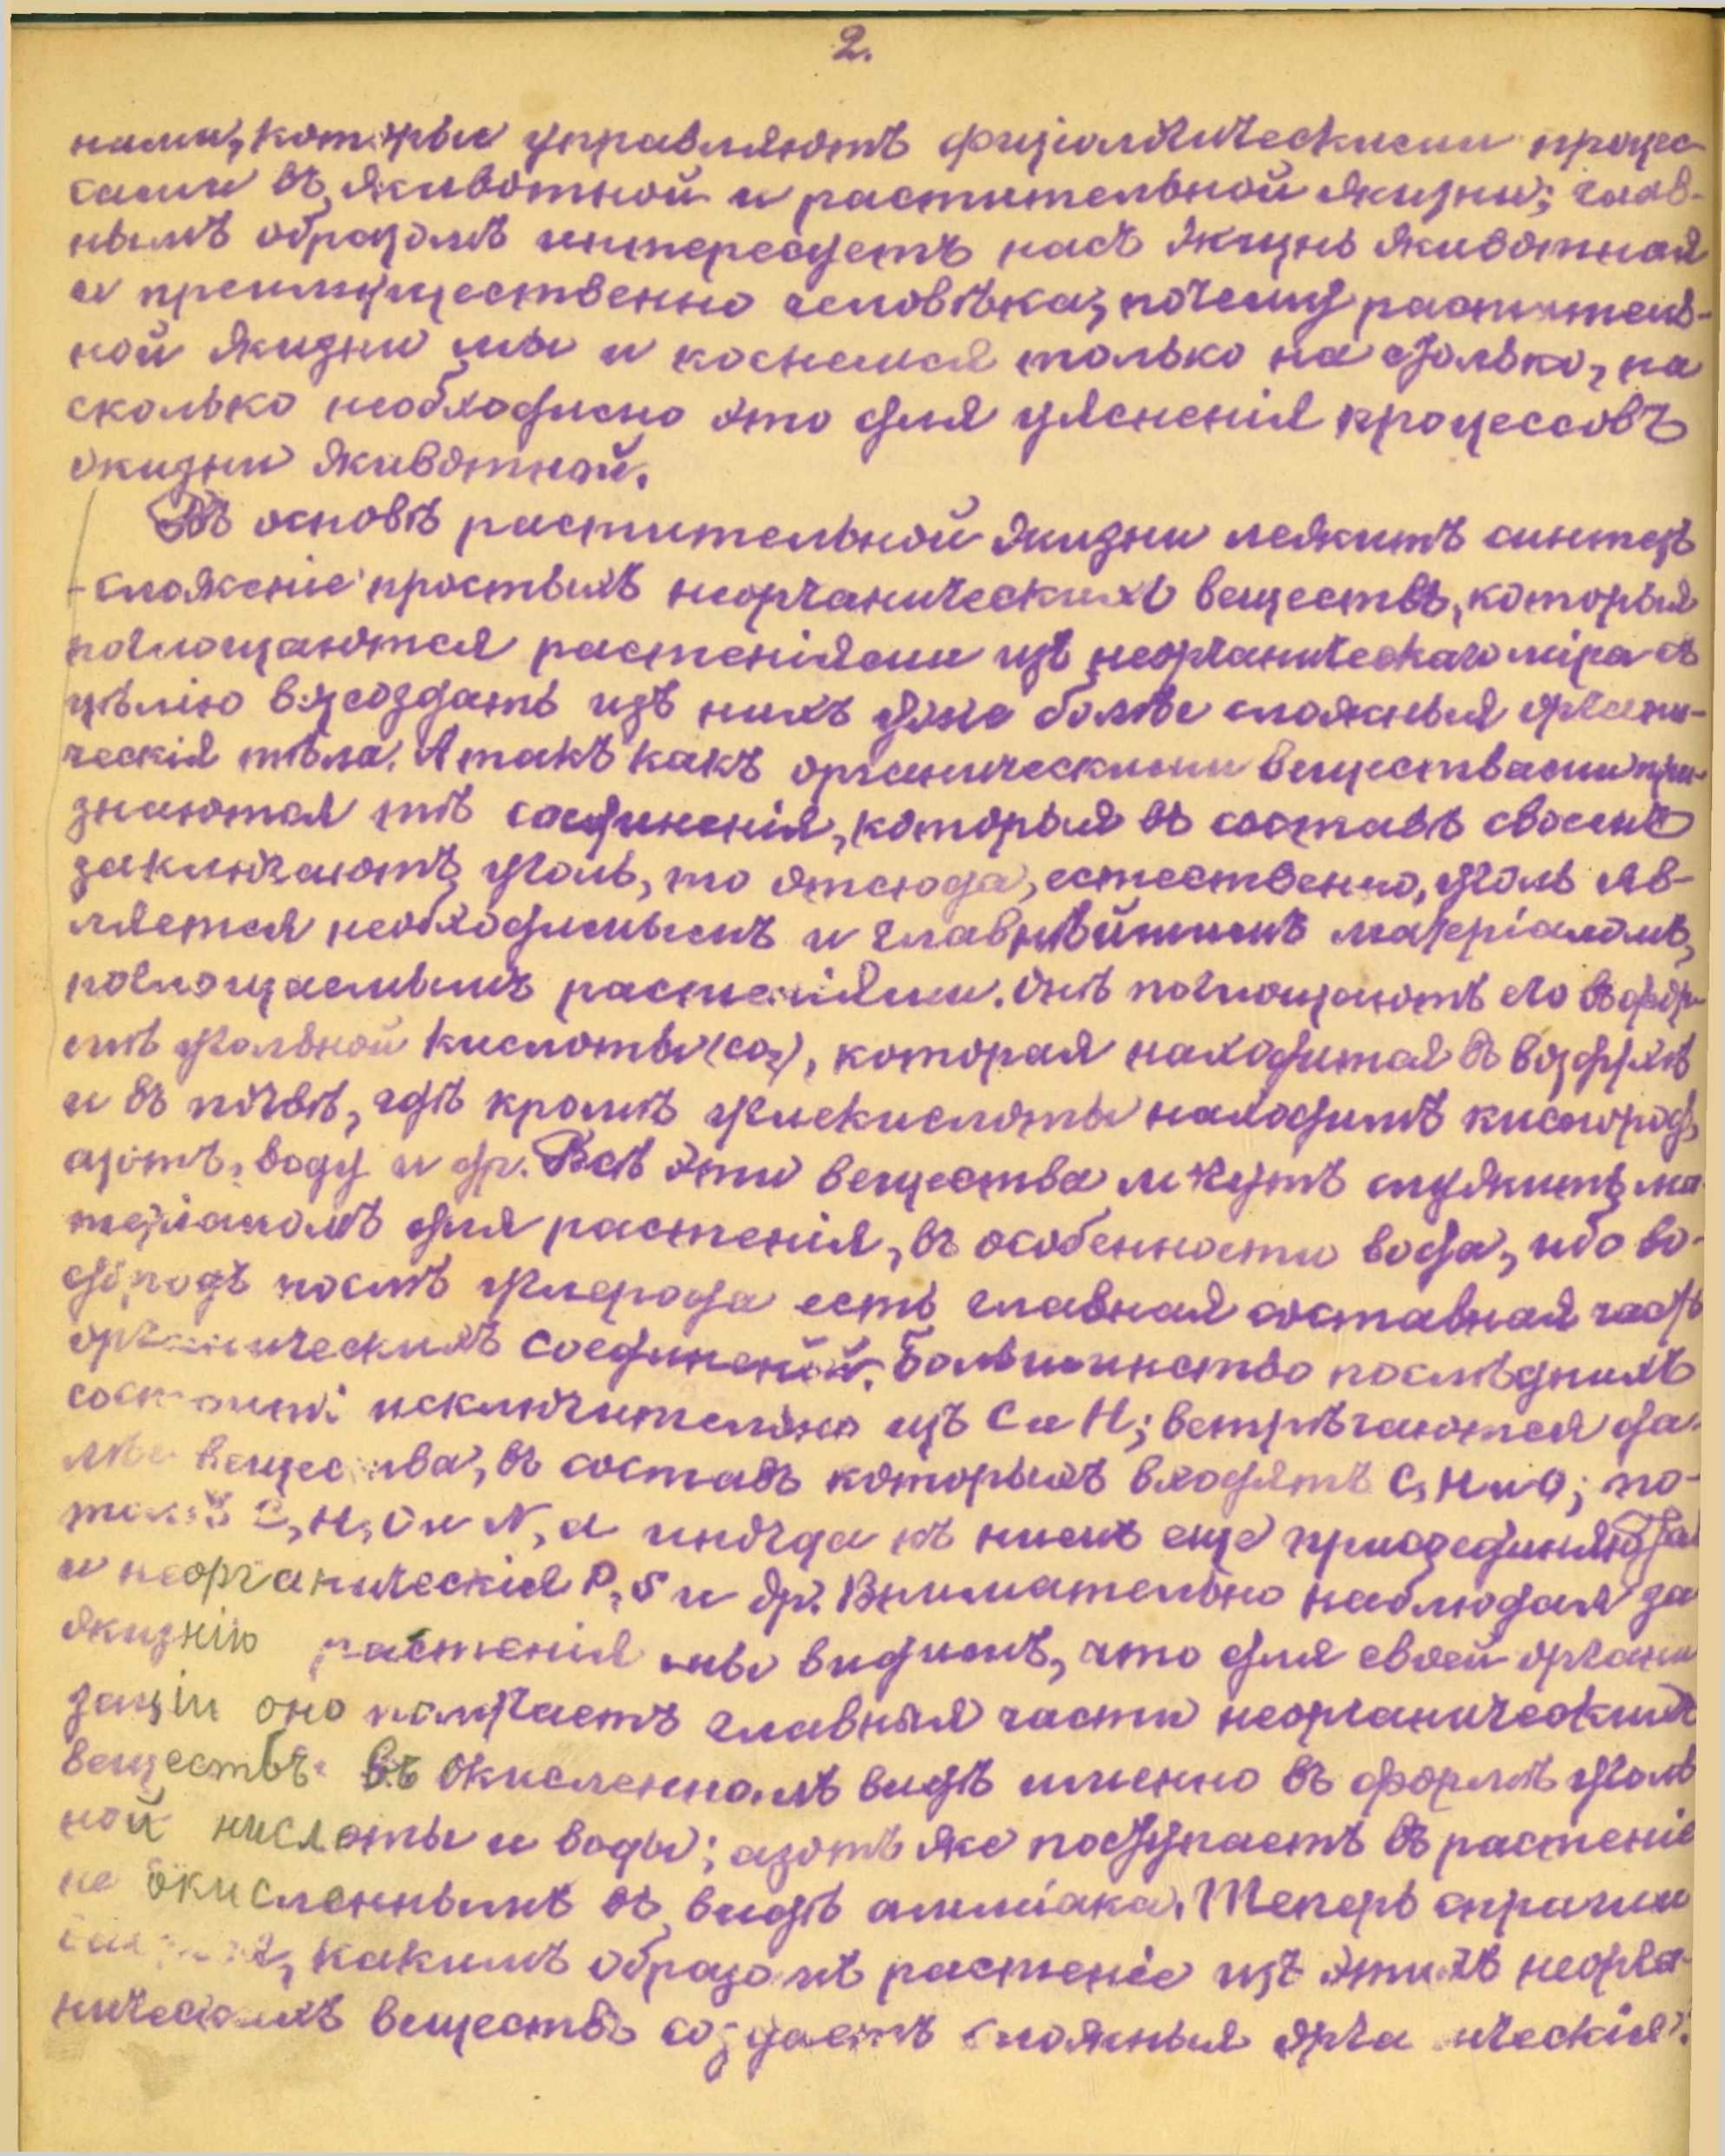 2.
ними, которые управляютъ физіологическими процес-
сами въ животной и растительной жизни; глав-
нымъ образомъ интересуетъ насъ жизнь животная
и преимущественно человѣка, почему раститель-
ной жизни мы и коснемся только на столько, на
сколько необходимо это для уясненія процессовъ
жизни животной.
Въ основѣ растительной жизни лежитъ синтезъ
- сложеніе простыхъ неорганическихъ веществъ, которыя
поглощаются растеніями изъ неорганическаго міра съ
цѣлію возсоздать изъ нихъ уже болѣе сложныя органи-
ческія тѣла. А такъ какъ органическими веществами при-
знаются тѣ соединенія, которыя въ составѣ своемъ
заключаютъ уголь, то отсюда, естественно, уголь яв-
ляется необходимымъ и главнѣйшимъ матеріаломъ,
поглощаемымъ растеніями. Онѣ поглощаютъ его въ фор-
мѣ угольной кислоты (CO2), которая находится въ воздухѣ
и въ почвѣ, гдѣ кромѣ углекислоты находимъ кислородъ,
азотъ, воду и др. Всѣ эти вещества могутъ служить ма-
теріаломъ для растенія, въ особенности вода, ибо во-
дородъ послѣ углерода есть главная составная часть
органическихъ соединеній. Большинство послѣднихъ
состоитъ исключительно изъ C и H; встрѣчаются да-
лѣе вещества, въ составъ которыхъ входятъ C, H и O; по-
томъ C, H, O и N, а иногда къ нимъ еще присоединяются
и неорганическія P, S и др. Внимательно наблюдая за
жизнію растенія мы видимъ, что для своей органи
заціи оно получаетъ главныя части неорганическихъ
веществъ въ окисленномъ видѣ именно въ формѣ уголь
ной кислоты и воды; азотъ же поступаетъ въ растеніе
не окисленнымъ въ видѣ амміака. Теперь спраши
какимъ образомъ растеніе изъ этихъ неорга-
ническихъ веществъ создаетъ сложныя органическія?